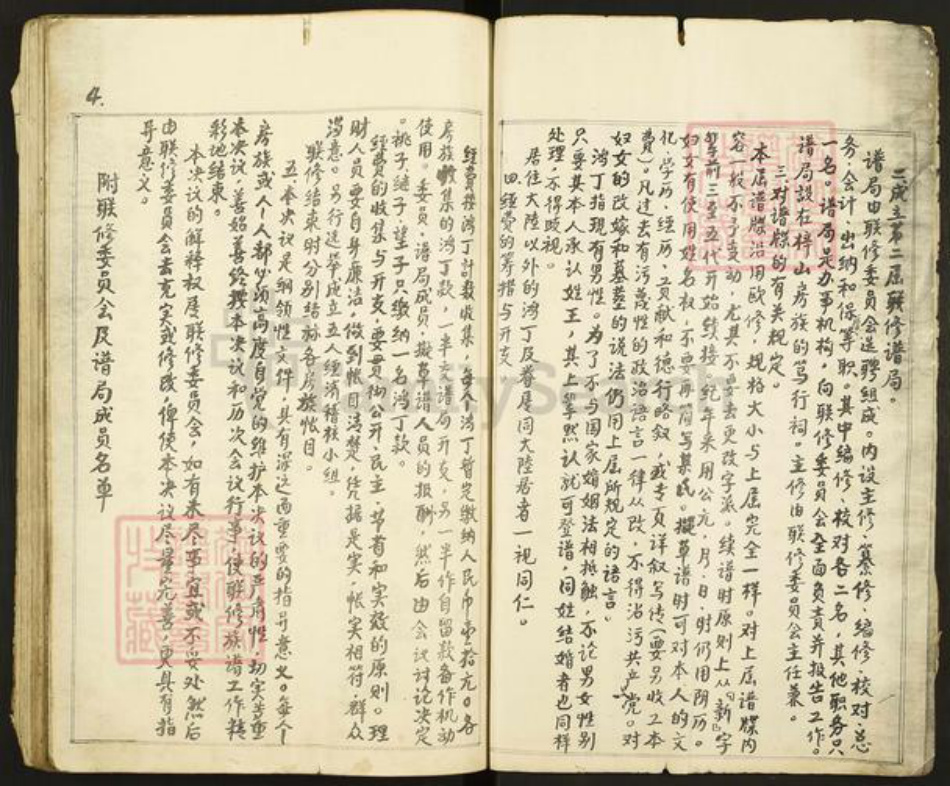 二成立第二届联修谱局。
谱局由联修委员会选聘组成。内设主修、纂修、编修、校对、总
务、会计、出纳和保等职。其中编修、校对各二名，其他职务只
一名。谱局是办事机构，向联修委员会全面负责并报告工作。
谱局设在梓山房族的笃行祠，主修由联修委员会主任兼。
三对谱牒的有关规定。
本届谱牒沿用欧修，规格大小与上届完全一样。对上届谱牒内
容一般不予变动，尤其不要去更改字派。续谱时原则上从“新”字
辈前三至五代开始续接，纪年采用公元，月、日、时仍用阴历。
妇女有使用姓名权，不要再简写某氏。擬草谱时可对本人的文
化、学历、经历、贡献和德行略叙，或专页详叙写传（要另收工本
费）。凡过去有污蔑性的政治语言一律从改，不得沾污共产党。对
妇女的改嫁和墓茔的说法仍用上届所规定的语言。
鸿丁指现有男性。为了不与国家婚姻法相抵触，不论男女性别
只要其本人承认姓王，其上辈然认就可登谱，同姓结婚者也同样
处理，不得歧视。
居住大陆以外的鸿丁及眷属同大陆居者一视同仁。
四经费的筹措与开支
4.
经费按鸿丁计数收集，每个鸿丁暂定缴纳人民币壹拾元。各
房族收集的鸿丁款，一半交谱局开支，另一半作自留款备作机动
使用。委员、谱局成员、擬草谱人员的报酬，然后由会议讨论决定
。祧子、继子、望子只缴纳一名鸿丁款。
经费的收集与开支，要贯彻公开、民主、节省和实效的原则。理
财人员要自身廉洁，做到帐目清楚，凭据是实，帐实相符，群众
满意。另行选举成立五人经济稽核小组。
联修结束时分别结标各房族帐目。
五、本决议是纲领性文件，具有深远而重要的指导意义。每个
房族或人人都必须高度自觉的维护本决议的严肃性，切实尊重
本决议，善始善终按本决议和历次会议行事，使联修族谱工作精
彩地结束。
本决议的解释权属联修委员会，如有未尽事宜或不妥处，然后
由联修委员会去充实或修改，俾使本决议尽量完善，更具有指
导意义。
附联修委员会及谱局成员名单